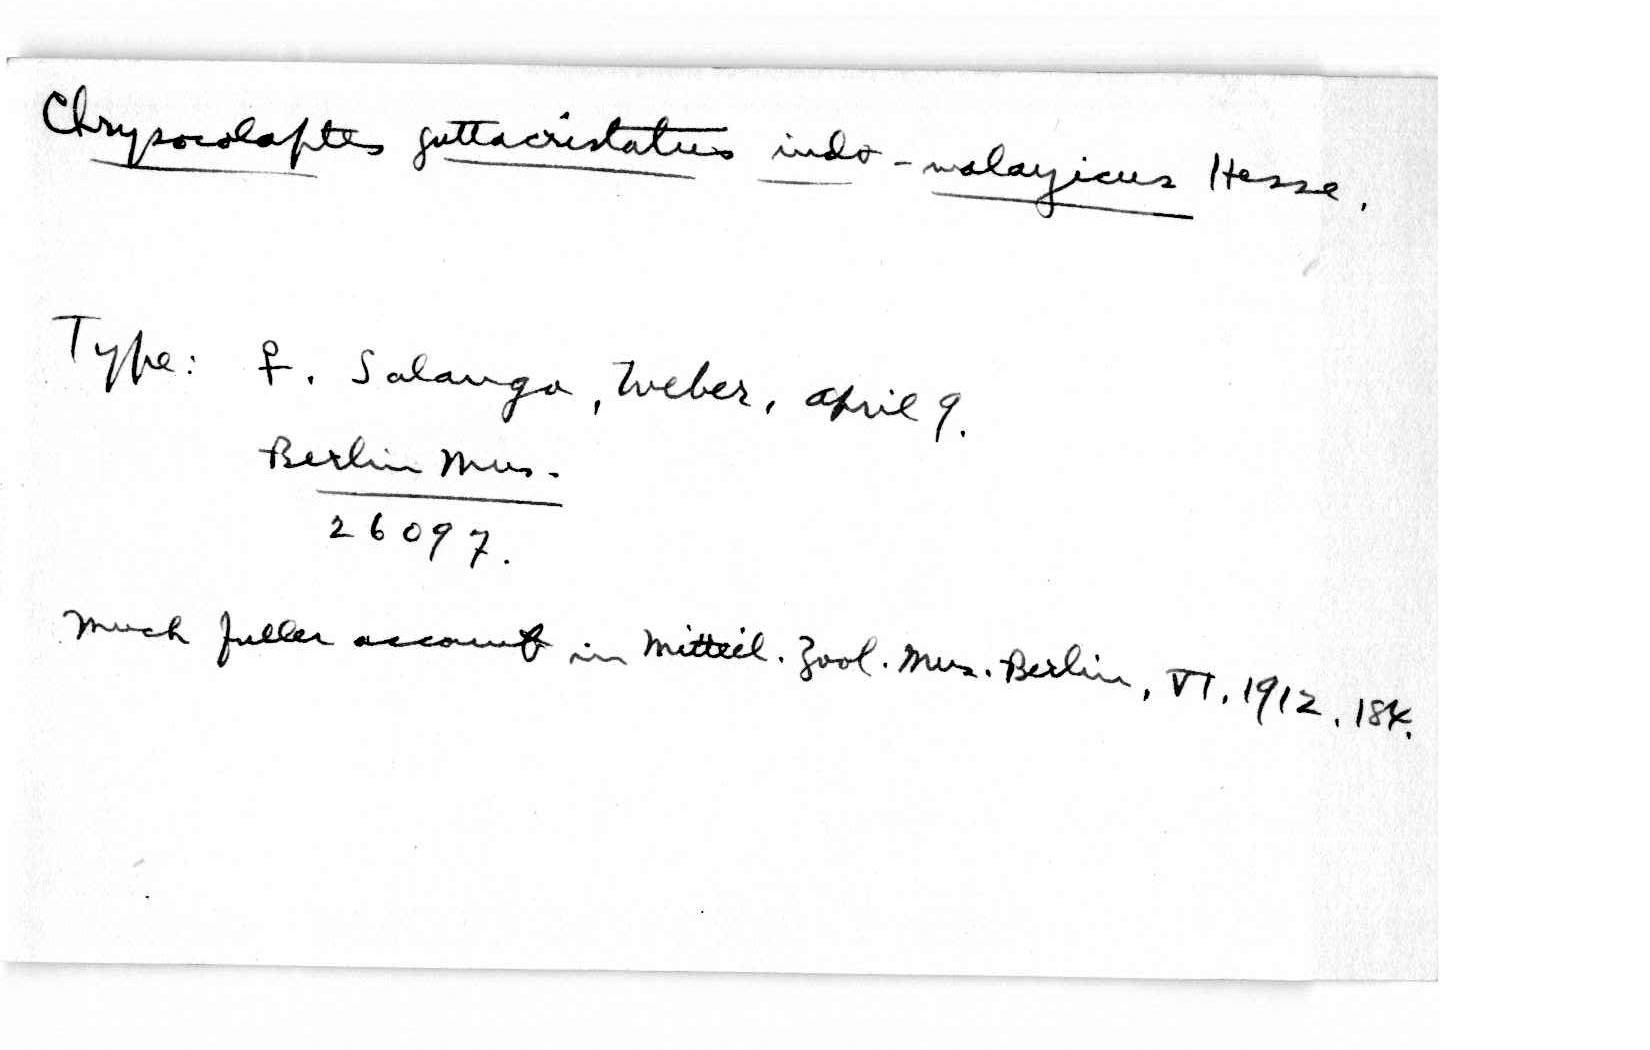 Chrysocolaptes guttacristatus indo-malayicus Hesse.
Type: ♀. Salanga, Weber, April 9.
Berlin Mus.
26097.
Much fuller account in Mitteil. Zool. Mus. Berlin, VI, 1912, 184.